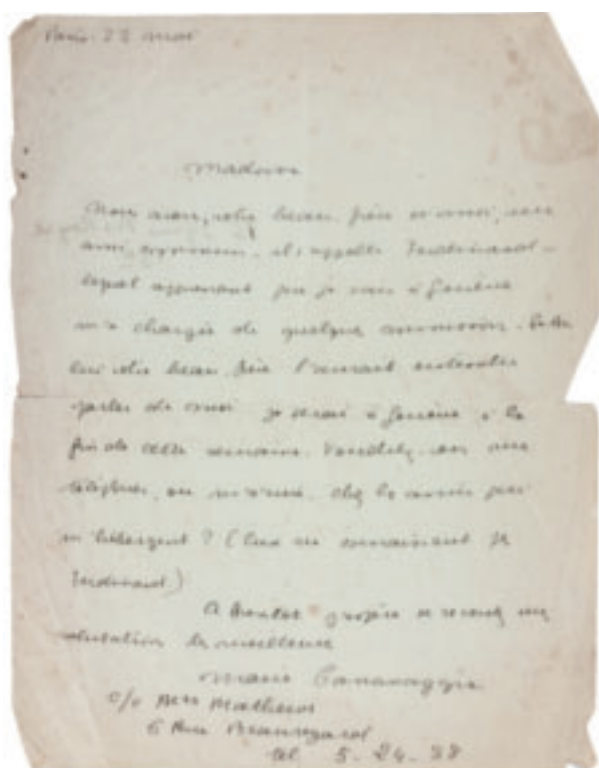 Paris. 22 mai
Madame
Nous avons, votre beau père et moi, un
ami commun. il s'appelle Ferdinand -
lequel apprenant que je vais à Genève
m'a chargée de quelque commission.
votre beau père
parler de moi je serai à Genève, à la
fin de cette semaine. Voudriez-vous me
téléphoner, ou m'écrire, chez les amis qui
m'hébergent ? (Eux ne connaissent pas
Ferdinand)
A bientôt j'espère et recevez mes
salutations les meilleures
Marie Canavaggia
c/o Mathews
6 Rue Beauregard
tél 5-24-38